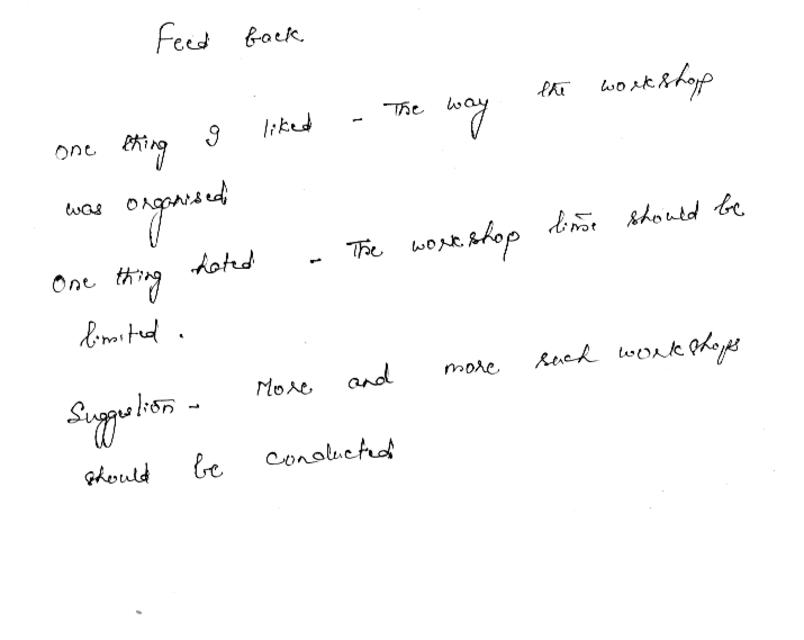 Feed back
One thing I liked - The way the workshop
was organised
One thing hated - The workshop time should be
limited.
Suggestion - More and more such workshops
should be conducted